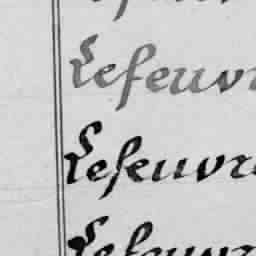 Lefeuvr
Lefeuvre
Lefeuvr